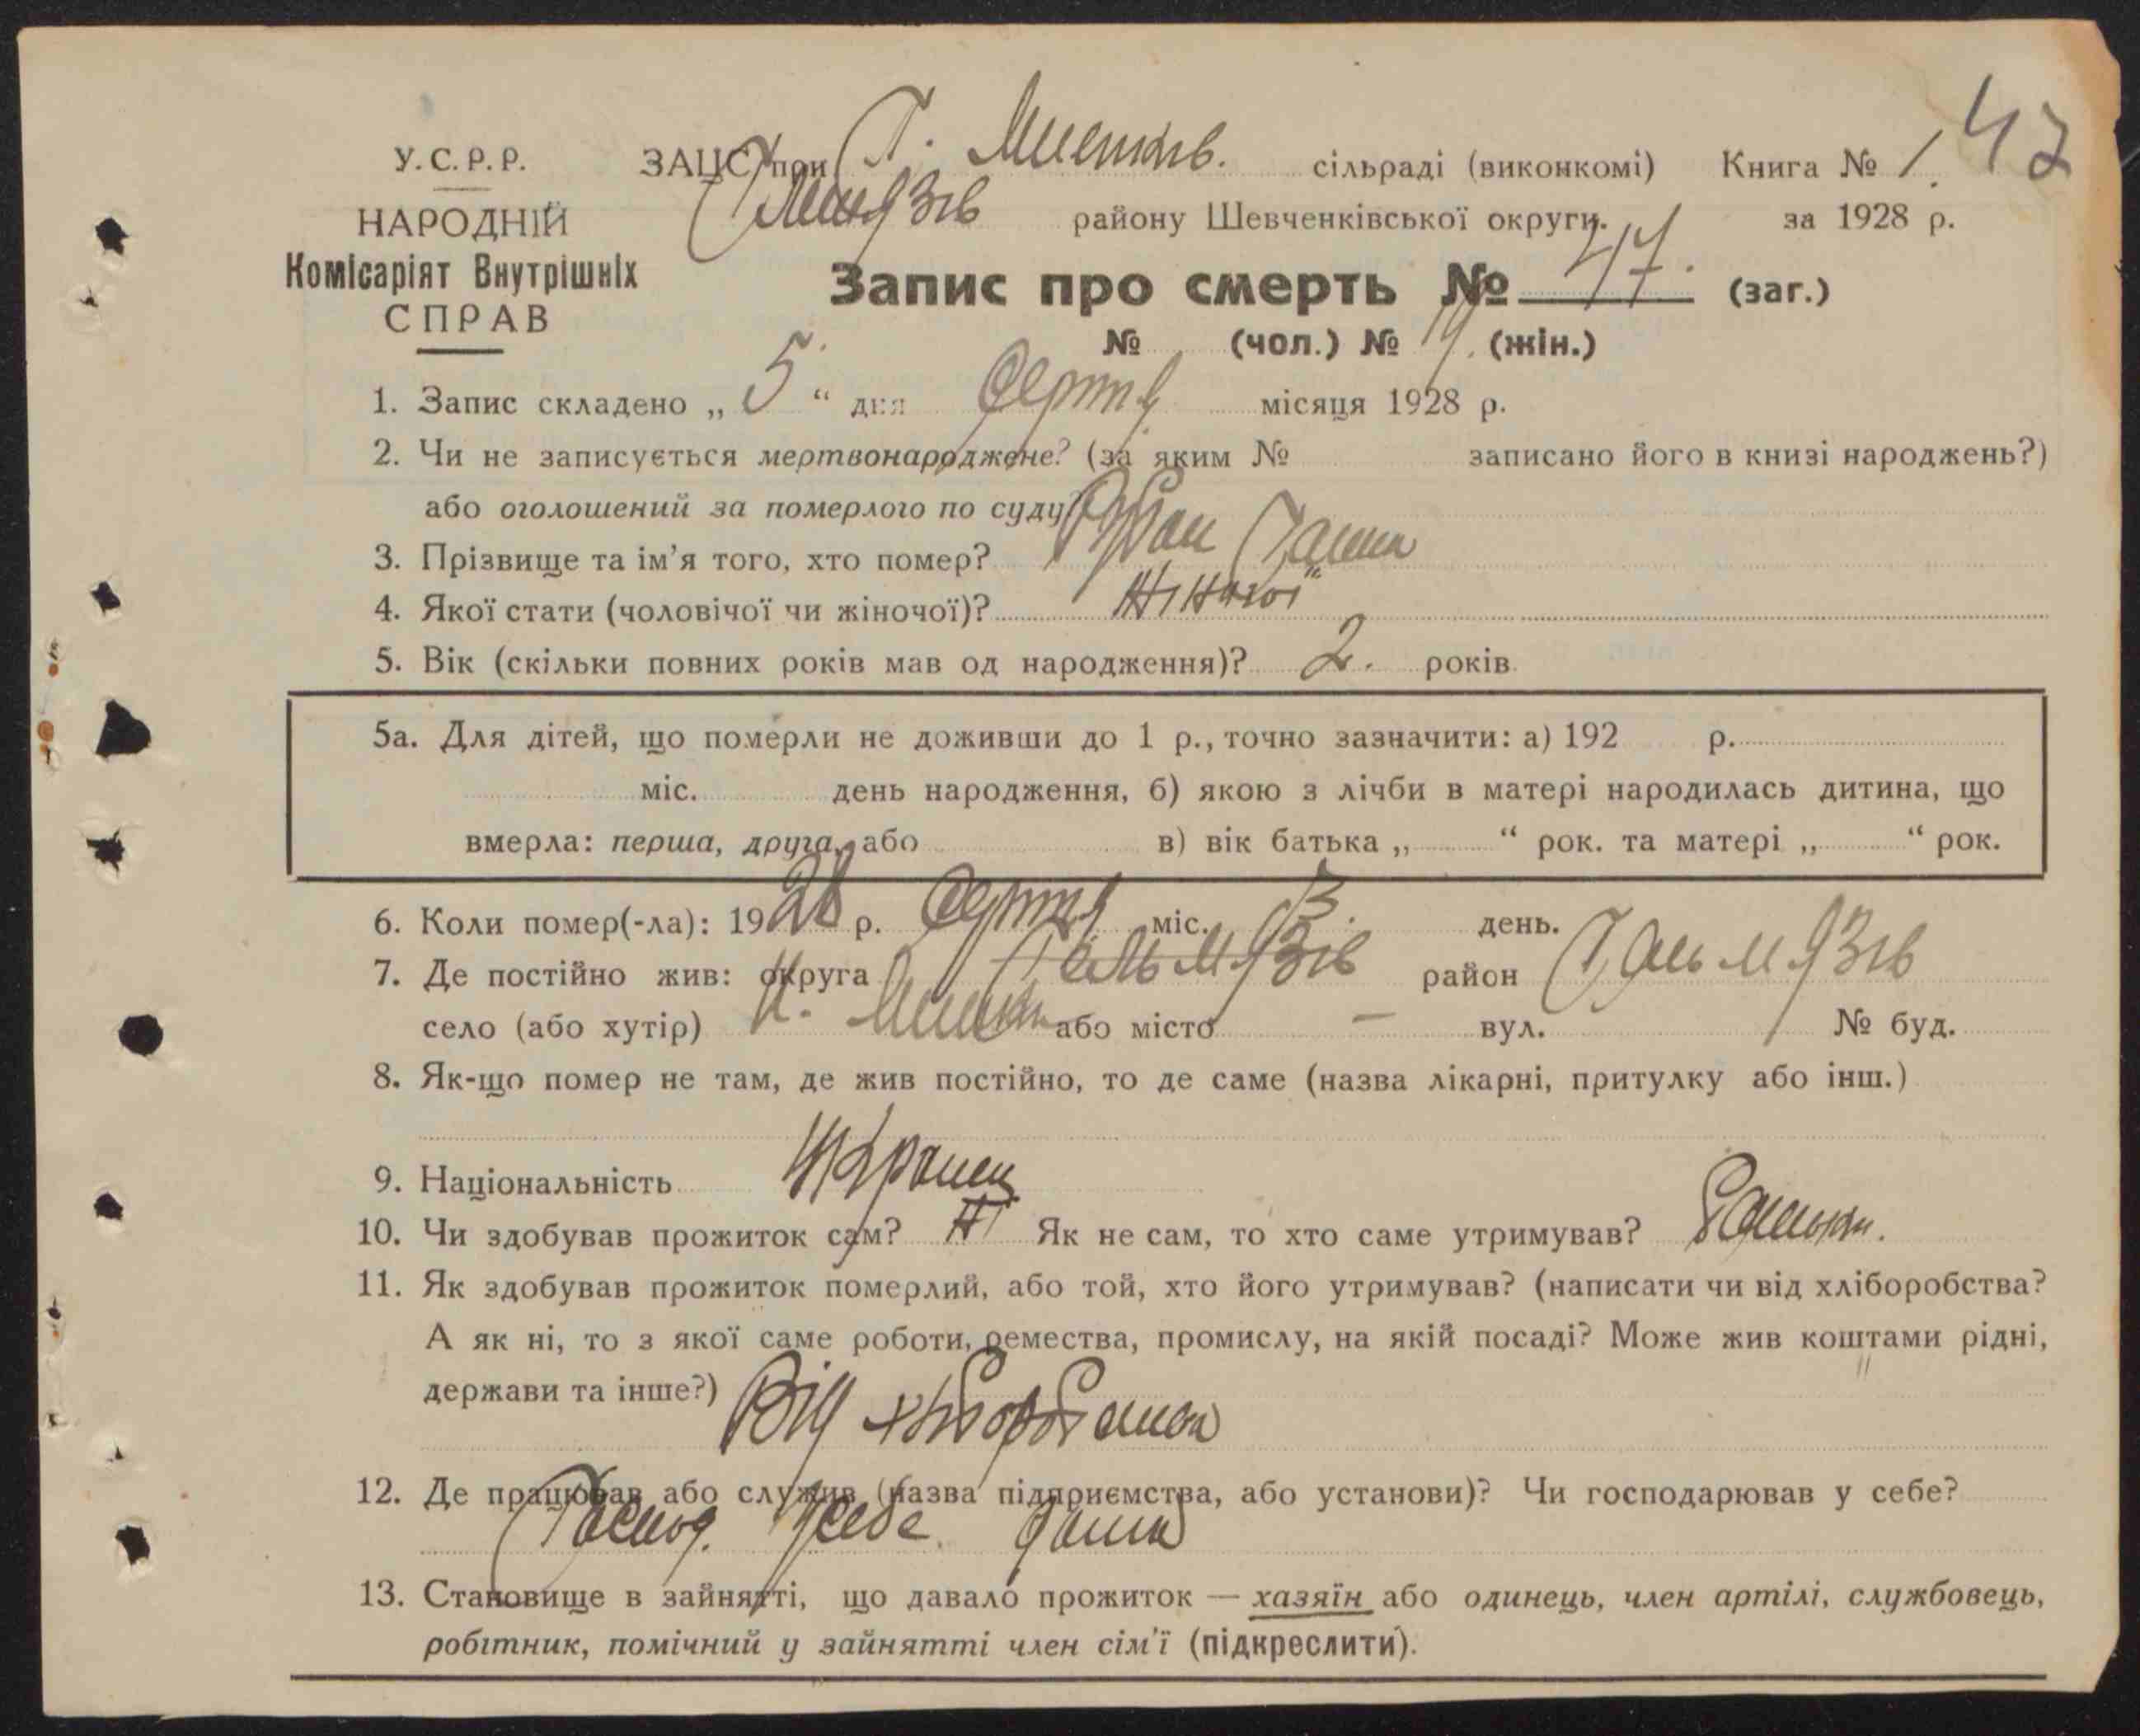 47
У.С.Р.Р. ЗАЦС при сільраді (виконкомі) Книга № 1.
НАРОДНІЙ району Шевченківської округи. за 1928 р.
Комісаріят Внутрішніх
СПРАВ
Запис про смерть № 47. (заг.)
№ (чол.) № (жін.)
1. Запис складено „ 5 “ дня Серпня місяця 1928 р.
2. Чи не записується мертвонароджене? (за яким № записано його в книзі народжень?)
або оголошений за померлого по суду?
3. Прізвище та ім'я того, хто помер? Ганна
4. Якої стати (чоловічої чи жіночої)? Жіночої
5. Вік (скільки повних років мав од народження)? 2. років
5а. Для дітей, що померли не доживши до 1 р., точно зазначити: а) 192 р.
міс. день народження, б) якою з лічби в матері народилась дитина, що
вмерла: перша, друга, або в) вік батька „ “ рок. та матері „ “ рок.
6. Коли помер(-ла): 1928 р. Серпня міс. 3. день.
7. Де постійно жив: округа Гельмязів район Гельмязів
село (або хутір) або місто — вул. № буд.
8. Як-що помер не там, де жив постійно, то де саме (назва лікарні, притулку або інш.)
9. Національність Україн
10. Чи здобував прожиток сам? Ні Як не сам, то хто саме утримував? Батьки.
11. Як здобував прожиток померлий, або той, хто його утримував? (написати чи від хліборобства?
А як ні, то з якої саме роботи, ремества, промислу, на якій посаді? Може жив коштами рідні,
держави та інше?) Від хліборобства
12. Де працював або служив (назва підприємства, або установи)? Чи господарював у себе?
Господ. у себе дома
13. Становище в зайнятті, що давало прожиток — хазяїн або одинець, член артілі, службовець,
робітник, помічний у зайнятті член сім'ї (підкреслити).